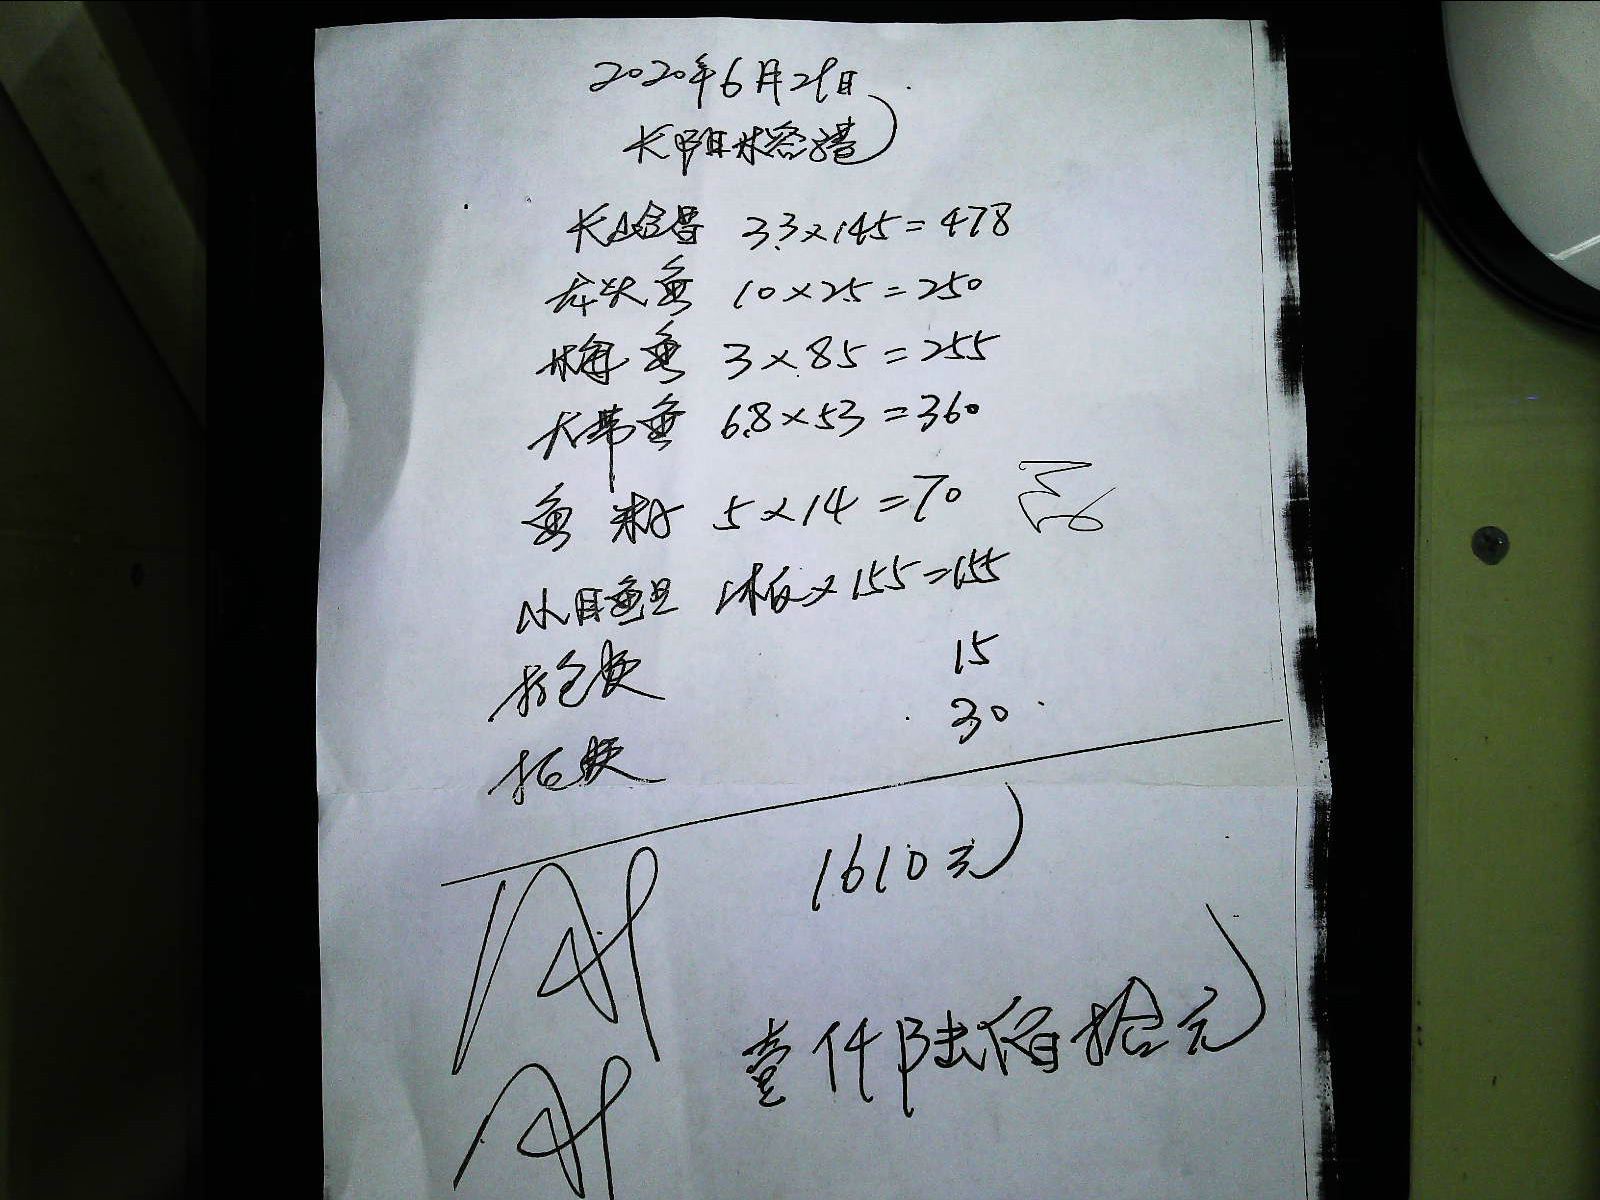 2020年6月29日
3.3×145=478
龙头鱼 10×25=250
鱼 3×85=255
大带鱼 6.8×53=360
鱼 5×14=70
小目鱼旦 1板×155=155
打包费 15
费 30
1610元
壹仟陆佰拾元